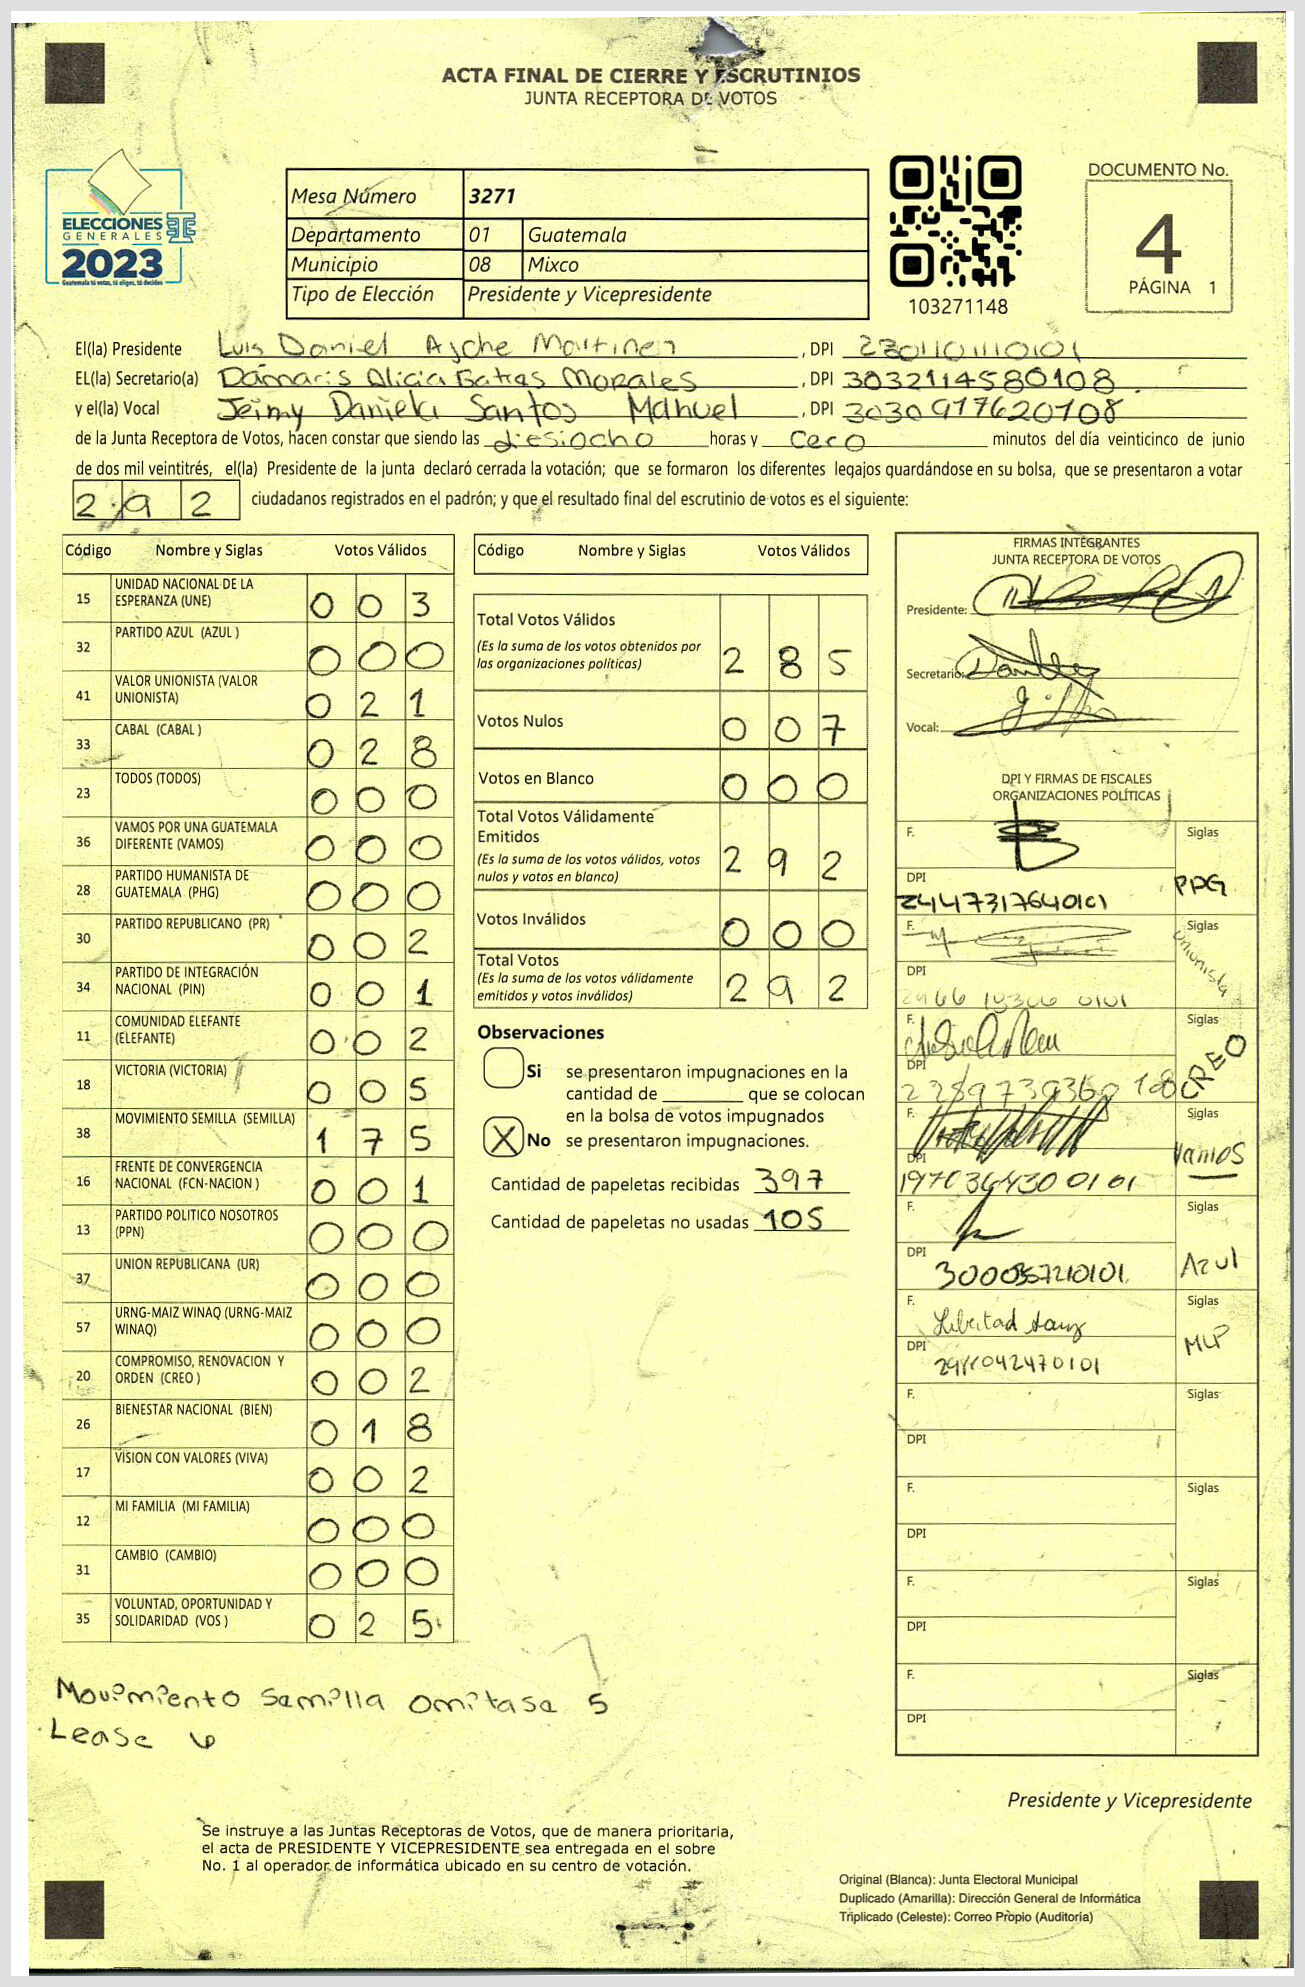 ACTA FINAL DE CIERRE Y ESCRUTINIOS
JUNTA RECEPTORA DE VOTOS
ELECCIONES
GENERALES
2023
Guatemala tú votas, tú eliges, tú decides
Mesa Número 3271
Departamento 01 Guatemala
Municipio 08 Mixco
Tipo de Elección Presidente y Vicepresidente
103271148
DOCUMENTO No.
4
PÁGINA 1
El(la) Presidente Luis Daniel Ajche Martinez , DPI
EL(la) Secretario(a) Damaris Alicia Batres Morales , DPI 3032114580108
y el(la) Vocal Jeimy Daniela Santos Manuel , DPI 3030917620108
de la Junta Receptora de Votos, hacen constar que siendo las diesiocho horas y Cero minutos del día veinticinco de junio
de dos mil veintitrés, el(la) Presidente de la junta declaró cerrada la votación; que se formaron los diferentes legajos guardándose en su bolsa, que se presentaron a votar
292 ciudadanos registrados en el padrón; y que el resultado final del escrutinio de votos es el siguiente:
Código Nombre y Siglas Votos Válidos
15 UNIDAD NACIONAL DE LA ESPERANZA (UNE) 0 0 3
32 PARTIDO AZUL (AZUL ) 0 0 0
41 VALOR UNIONISTA (VALOR UNIONISTA) 0 2 1
33 CABAL (CABAL ) 0 2 8
23 TODOS (TODOS) 0 0 0
36 VAMOS POR UNA GUATEMALA DIFERENTE (VAMOS) 0 0 0
28 PARTIDO HUMANISTA DE GUATEMALA (PHG) 0 0 0
30 PARTIDO REPUBLICANO (PR) 0 0 2
34 PARTIDO DE INTEGRACIÓN NACIONAL (PIN) 0 0 1
11 COMUNIDAD ELEFANTE (ELEFANTE) 0 0 2
18 VICTORIA (VICTORIA) 0 0 5
38 MOVIMIENTO SEMILLA (SEMILLA) 1 7 5
16 FRENTE DE CONVERGENCIA NACIONAL (FCN-NACION ) 0 0 1
13 PARTIDO POLITICO NOSOTROS (PPN) 0 0 0
37 UNION REPUBLICANA (UR) 0 0 0
57 URNG-MAIZ WINAQ (URNG-MAIZ WINAQ) 0 0 0
20 COMPROMISO, RENOVACION Y ORDEN (CREO ) 0 0 2
26 BIENESTAR NACIONAL (BIEN) 0 1 8
17 VISION CON VALORES (VIVA) 0 0 2
12 MI FAMILIA (MI FAMILIA) 0 0 0
31 CAMBIO (CAMBIO) 0 0 0
35 VOLUNTAD, OPORTUNIDAD Y SOLIDARIDAD (VOS ) 0 2 5
Movimiento Semilla omitase 5
Lease 6
Código Nombre y Siglas Votos Válidos
Total Votos Válidos
(Es la suma de los votos obtenidos por las organizaciones políticas) 2 8 5
Votos Nulos 0 0 7
Votos en Blanco 0 0 0
Total Votos Válidamente Emitidos
(Es la suma de los votos válidos, votos nulos y votos en blanco) 2 9 2
Votos Inválidos 0 0 0
Total Votos
(Es la suma de los votos válidamente emitidos y votos inválidos) 2 9 2
Observaciones
Si se presentaron impugnaciones en la
cantidad de ________ que se colocan
en la bolsa de votos impugnados
X No se presentaron impugnaciones.
Cantidad de papeletas recibidas 397
Cantidad de papeletas no usadas 105
FIRMAS INTEGRANTES
JUNTA RECEPTORA DE VOTOS
Presidente:
Secretario:
Vocal:
DPI Y FIRMAS DE FISCALES
ORGANIZACIONES POLÍTICAS
F. Siglas
DPI PPG
2447317640101
F. Siglas
DPI Unionista
F. Siglas
DPI CREO
F. Siglas
DPI Vamos
F. Siglas
DPI Azul
F. Libertad Siglas
DPI MLP
F. Siglas
DPI
F. Siglas
DPI
F. Siglas
DPI
F. Siglas
DPI
Presidente y Vicepresidente
Se instruye a las Juntas Receptoras de Votos, que de manera prioritaria,
el acta de PRESIDENTE Y VICEPRESIDENTE sea entregada en el sobre
No. 1 al operador de informática ubicado en su centro de votación.
Original (Blanca): Junta Electoral Municipal
Duplicado (Amarilla): Dirección General de Informática
Triplicado (Celeste): Correo Propio (Auditoría)